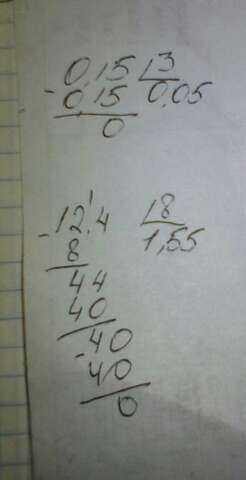 0,15 | 3
- 0,15 0,05
0
- 12,4 | 8
8 1,55
44
40
40
- 40
0